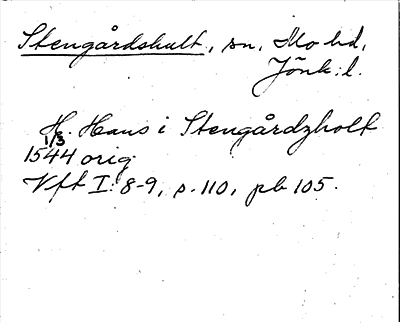 Stengårdshult, sn, Mo hd,
Jönk. l.
H. Hans i Stengårdzholt
1/3
1544 orig.
Vft I: 8-9, s. 110, pb 105.